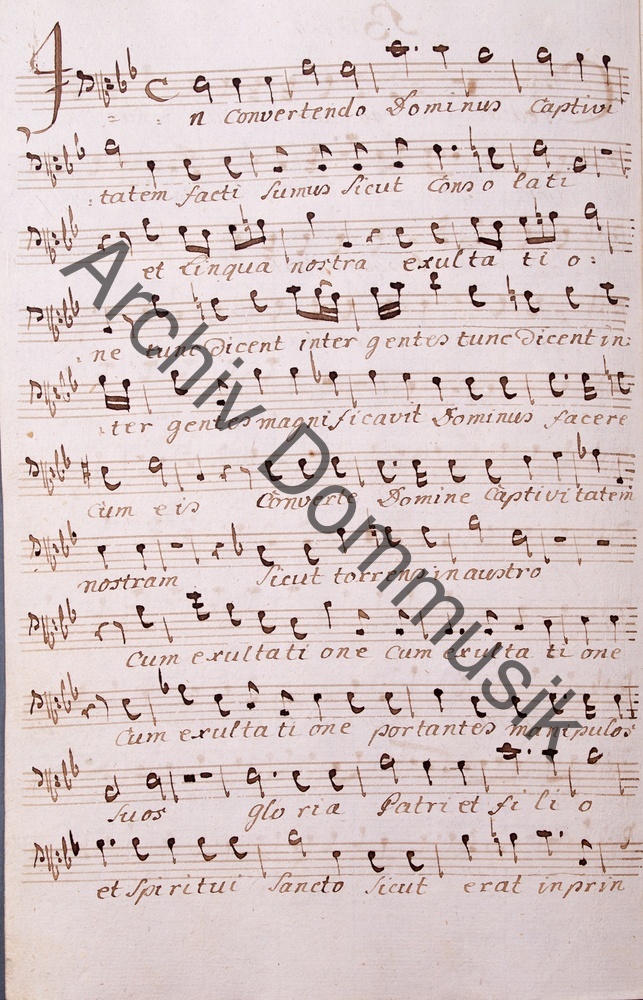 In Convertendo Dominus Captivi
:tatem facti sumus sicut Conso lati
et Lingua nostra exulta ti o:
ne tunc Dicent inter gentes tunc Dicent in:
:ter gentes magnificavit Dominus facere
Cum eis Converte Domine Captivitatem
nostram sicut torrens in austro
Cum exultati one Cum exulta ti one
Cum exulta ti one portantes manipulos
suos glo ria Patri et fi li o
et Spiritui Sancto sicut erat in prin
Archiv Dommusik